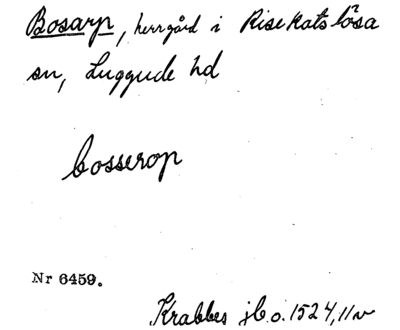 Bosarp, herrgård i Risekatslösa
sn, Luggude hd
bosserop
Nr 6459.
Krabbes jb. o. 1524, 11v